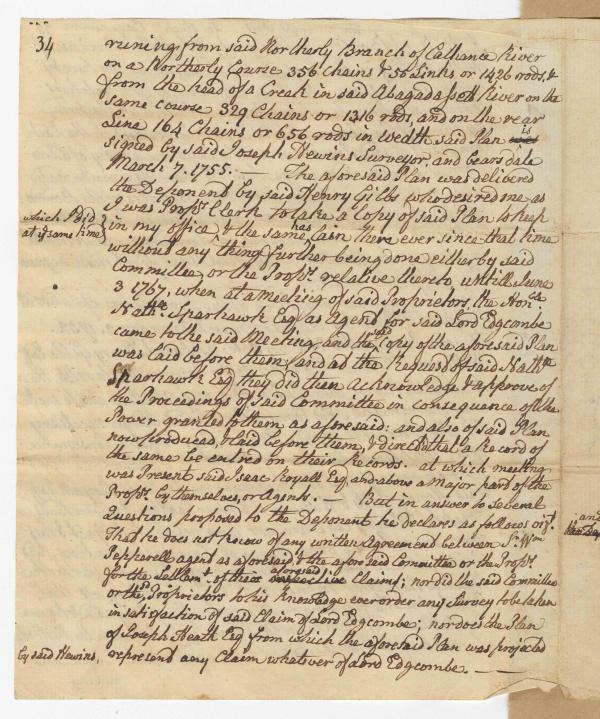 34
runing from said Northerly Branch of Cathance River
on a Northerly Course 356 Chains & 56 Links or 1426 rods, &
from the head of a Creak in said Abagadassett River on the
same course 329 Chains or 1316 rods, and on the rear
Line 164 Chains or 656 rods in wedth said Plan is
signed by said Joseph Hewins Surveyor, and bears date
March 7. 1755. — The aforesaid Plan was delivered
the Deponent by said Henry Gibbs who desired me as
I was Propr.s Clerk to take a Copy of said Plan to keep
which I did
at ye same time
in my office, & the same has Lain there ever since that time
without any thing further being done either by said
Committee, or the Propr.s relative thereto, untill June
3 1767, when at a Meeting of said Proprietors, the Honble
Nathll Sparhawk Esq as Agent for said Lord Edgcombe
came to the said Meeting, and the said Copy of the aforesaid Plan
was laid before them, and at the Request of said Nathll
Sparhawk Esq they did then Acknowledge & approve of
the Proceedings of said Committee in consequence of the
Power granted to them as aforesaid: and also of said Plan
now produced, & laid before them, & directed that a Record of
the same be entred on their Records. at which meeting
was Present said Isaac Royall Esq, and above a major part of the
Propr.s by themselves, or Agents. — But in answer to several
Questions proposed to the Deponant he declares as follows vizt.
That he does not know of any written Agreement between Sr. Wm
Pepperell agent as aforesaid & the aforesaid Committee or the Propr.s
for the settlemt. of their aforesaid Claims; nor did the said Committee
or the sd Proprietors to his Knowledge ever order any Survey to be taken
in satisfaction of said Claim of Lord Edgcombe; nor does the Plan
of Joseph Heath Esq from which the aforesaid Plan was projected
by said Hewins,
represent any Claim whatever of Lord Edgcombe. —